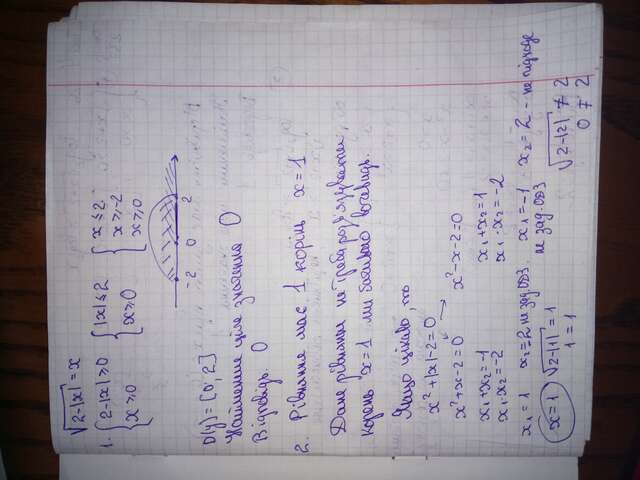 √2-|x| = x
1. { 2-|x| ≥ 0 { |x| ≤ 2 { x ≤ 2
x ≥ 0 x ≥ 0 x ≥ -2
x ≥ 0
-2 0 2
D(y) = [0; 2]
Найменше ціле значення 0
Відповідь 0
2. Рівняння має 1 корінь x = 1
Дане рівняння не треба розв'язувати,
корень x = 1 ми бачимо очевидь.
Якщо цікаво, то
x² + |x| - 2 = 0
x² + x - 2 = 0 x² - x - 2 = 0
x₁ + x₂ = -1 x₁ + x₂ = 1
x₁ x₂ = -2 x₁ · x₂ = -2
x₁ = 1 x₂ = 2 не зад. ОДЗ x₁ = -1 x₂ = 2 - не підходе
не зад. ОДЗ
x = 1 √2-|1| = 1 √2-|2| ≠ 2
1 = 1 0 ≠ 2